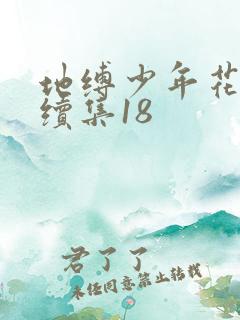 地缚少年花
续集18
君了了
未经同意禁止转载